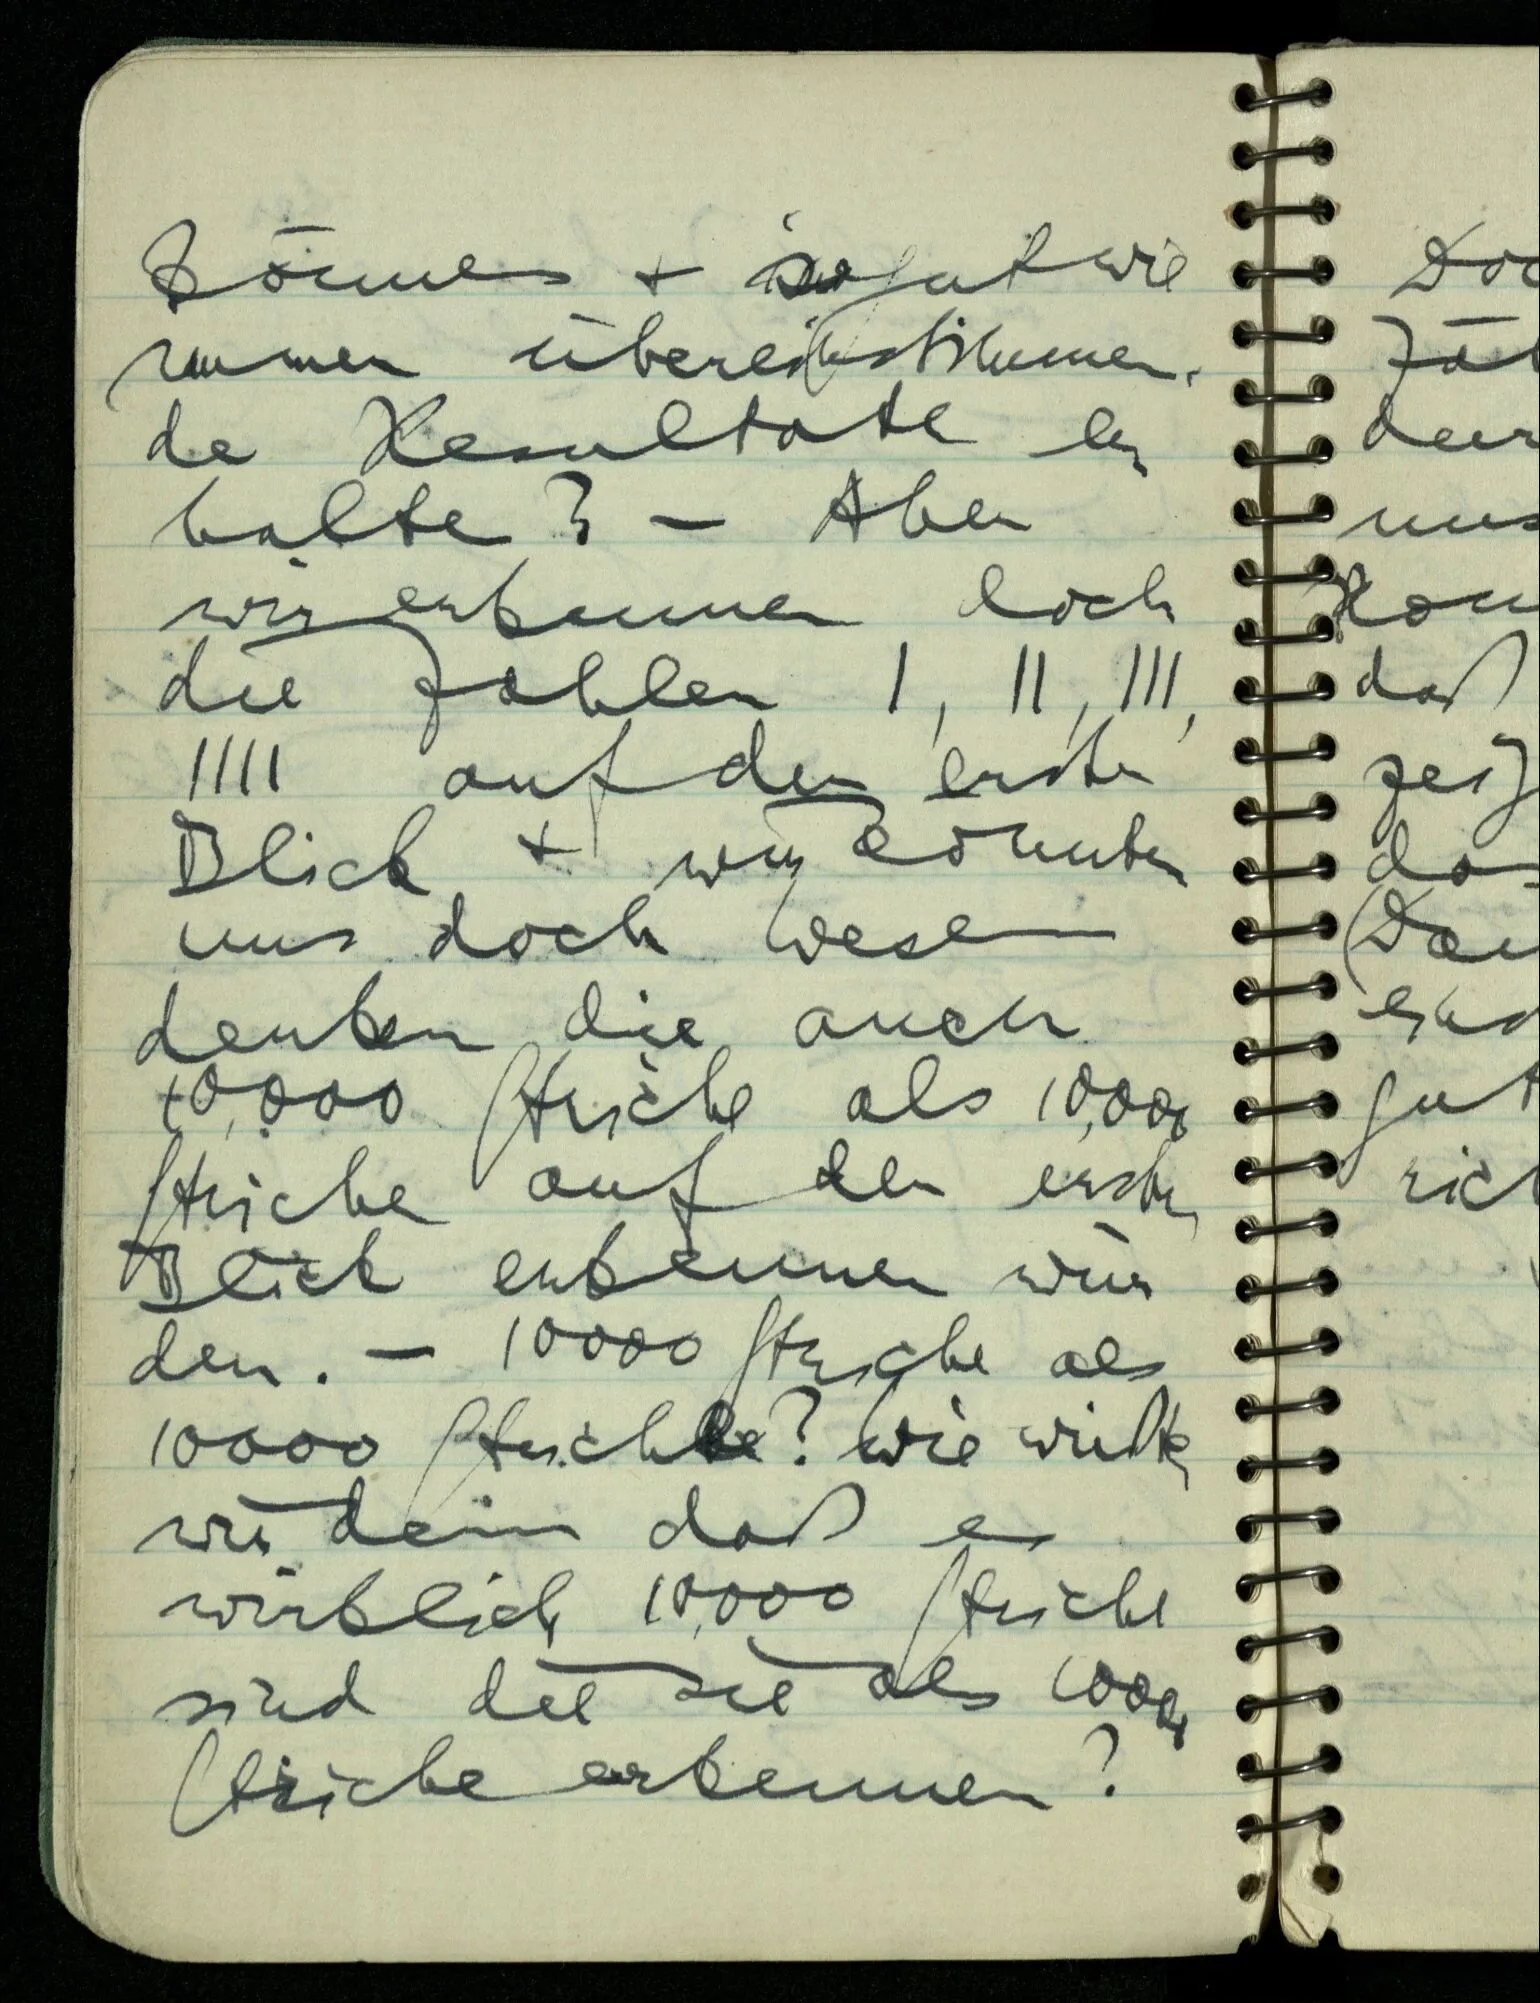 können + so gut wie
immer übereinstimmen-
de Resultate er
halte? – Aber
wir erkennen doch
die Zahlen |, ||, |||,
|||| auf den ersten
Blick + wir könnten
uns doch Wesen
denken die auch
10,000 Striche als 10,000
Striche auf den ersten
Blick erkennen wür
den. – 10000 Striche als
10000 Striche? Wie wissen
wir denn daß es
wirklich 10,000 Striche
sind die sie als 10000
Striche erkennen?
daß
gut